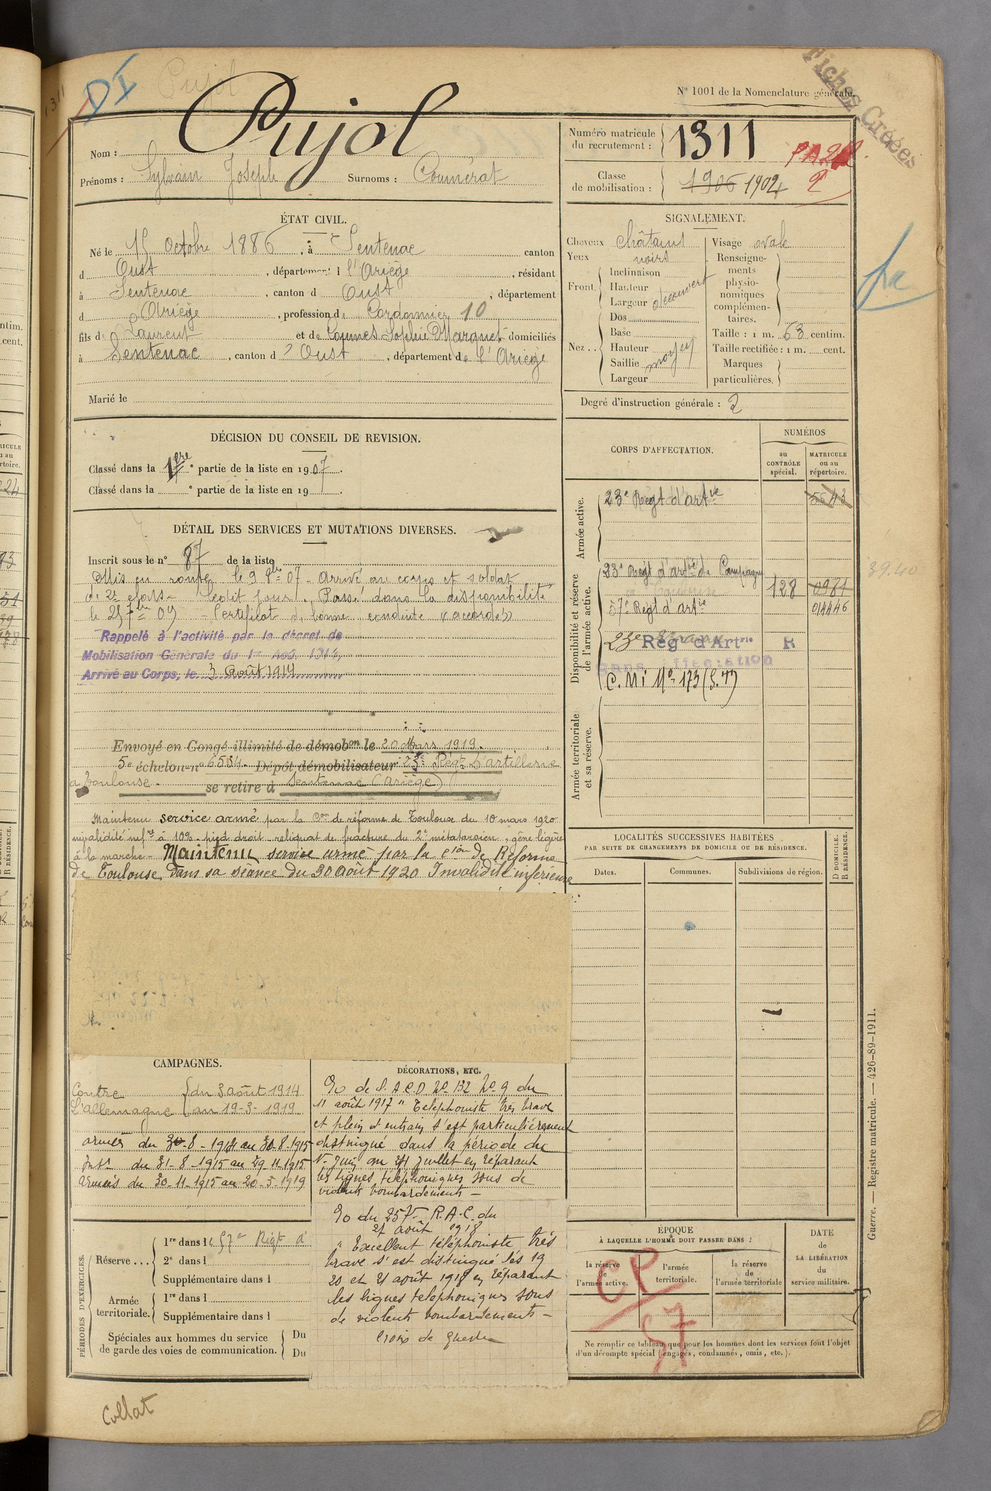 DI
Pujol
N° 1001 de la Nomenclature générale.
Fiches Créées
Nom : Pujol
Prénoms : Sylvain Joseph Surnoms : Coumérat
Numéro matricule du recrutement : 1311
PA2
Classe de mobilisation : 1906 1902
ÉTAT CIVIL.
Né le 15 Octobre 1886, à Sentenac canton
d Oust, département d l'Ariège, résidant
à Sentenac, canton d Oust, département
d Ariège, profession d Cordonnier 10
fils d Laurent et de Sophie domiciliés
à Sentenac, canton d' Oust, département de l'Ariège
Marié le
SIGNALEMENT.
Cheveux châtains
Yeux noirs
Front. Inclinaison
Hauteur
Largeur découvert
Nez . . Dos
Base
Hauteur
Saillie moyen
Largeur
Visage ovale
Renseignements physionomiques complémentaires.
Taille : 1 m. 63 centim.
Taille rectifiée : 1 m. cent.
Marques particulières.
Degré d'instruction générale : 2
DÉCISION DU CONSEIL DE REVISION.
Classé dans la 1ère partie de la liste en 1907.
Classé dans la ° partie de la liste en 19 .
DÉTAIL DES SERVICES ET MUTATIONS DIVERSES.
Inscrit sous le n° 87 de la liste
Mis en route le 9 8bre 07 - Arrivé au corps et soldat
de 2e classe - ledit jour. Passé dans la disponibilité
le 25 7bre 09 - Certificat de bonne conduite "accordé"
Rappelé à l'activité par le décret de
Mobilisation Générale du 1er Aoû. 1914,
Arrivé au Corps, le 3 août 1914
Envoyé en Congé illimité de démobon le 20 Mars 1919.
5e échelon n° 6584 Dépôt démobilisateur 23e Régt d'artillerie
a Toulouse. se retire à Sentenac (Ariège)
Maintenu service armé par la Con de réforme de Toulouse du 10 mars 1920
invalidité infre à 10% pied droit - reliquat de fracture du 2e métatarsien, gêne légère
à la marche - Maintenu service armé par la cion de Réforme
de Toulouse dans sa séance du 30 août 1920 Invalidité inférieure
CORPS D'AFFECTATION.
NUMÉROS
au CONTRÔLE spécial.
MATRICULE ou au répertoire.
Armée active.
23e Régt d'artie 5543
Disponibilité et réserve de l'armée active.
23e Régt d'artie de Campagne
à Toulouse 128 0981
57e Régt d'artie 01446
23e Rég' d'Artrie R
sans affectation
C.M. No 173 (S.T)
39.40
Armée territoriale et sa réserve.
LOCALITÉS SUCCESSIVES HABITÉES
PAR SUITE DE CHANGEMENTS DE DOMICILE OU DE RÉSIDENCE.
Dates. Communes. Subdivisions de région.
D DOMICILE. R RÉSIDENCE.
CAMPAGNES.
Contre l'allemagne du 3 août 1914
au 19-3-1919
armées du 30-8-1914 au 30.8.1915
Intr du 31-8-1915 au 29 11-1915
armées du 30-11-1915 au 20-3-1919
DÉCORATIONS, ETC.
%o de l'A.C.D. No 132 No 9 du
11 août 1917 " Téléphoniste très brave
et plein d'entrain s'est particulièrement
distingué dans la période du
1er Juin au 31 juillet en réparant
les lignes téléphoniques sous de
violents bombardements -
%o du 257e R.A.C. du
27 août 1918
" Excellent téléphoniste très
brave s'est distingué les 19
20 et 21 août 1918 en réparant
les lignes téléphoniques sous
de violents bombardements -
Croix de guerre
PÉRIODES D'EXERCICES.
Réserve . . . 1re dans l 57e Régt d'
2e dans l
Supplémentaire dans l
Armée territoriale. 1re dans l
Supplémentaire dans l
Spéciales aux hommes du service de garde des voies de communication. Du
Du
ÉPOQUE
À LAQUELLE L'HOMME DOIT PASSER DANS :
la réserve de l'armée active.
l'armée territoriale.
la réserve de l'armée territoriale
DATE de LA LIBÉRATION du service militaire.
CP 57
Ne remplir ce tableau que pour les hommes dont les services font l'objet
d'un décompte spécial (engagés, condamnés, omis, etc.).
Guerre. — Registre matricule. — 426-89-1911.
Collat